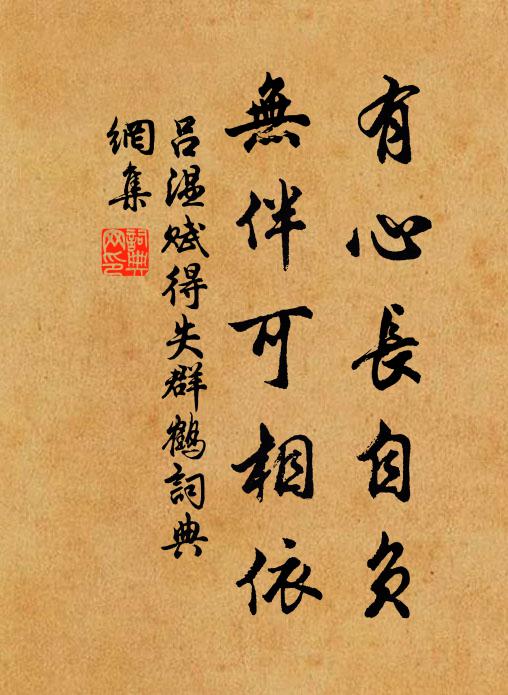 有心長自負
無伴可相依
呂溫賦得失群鶴詞典
網集
詞典
网印